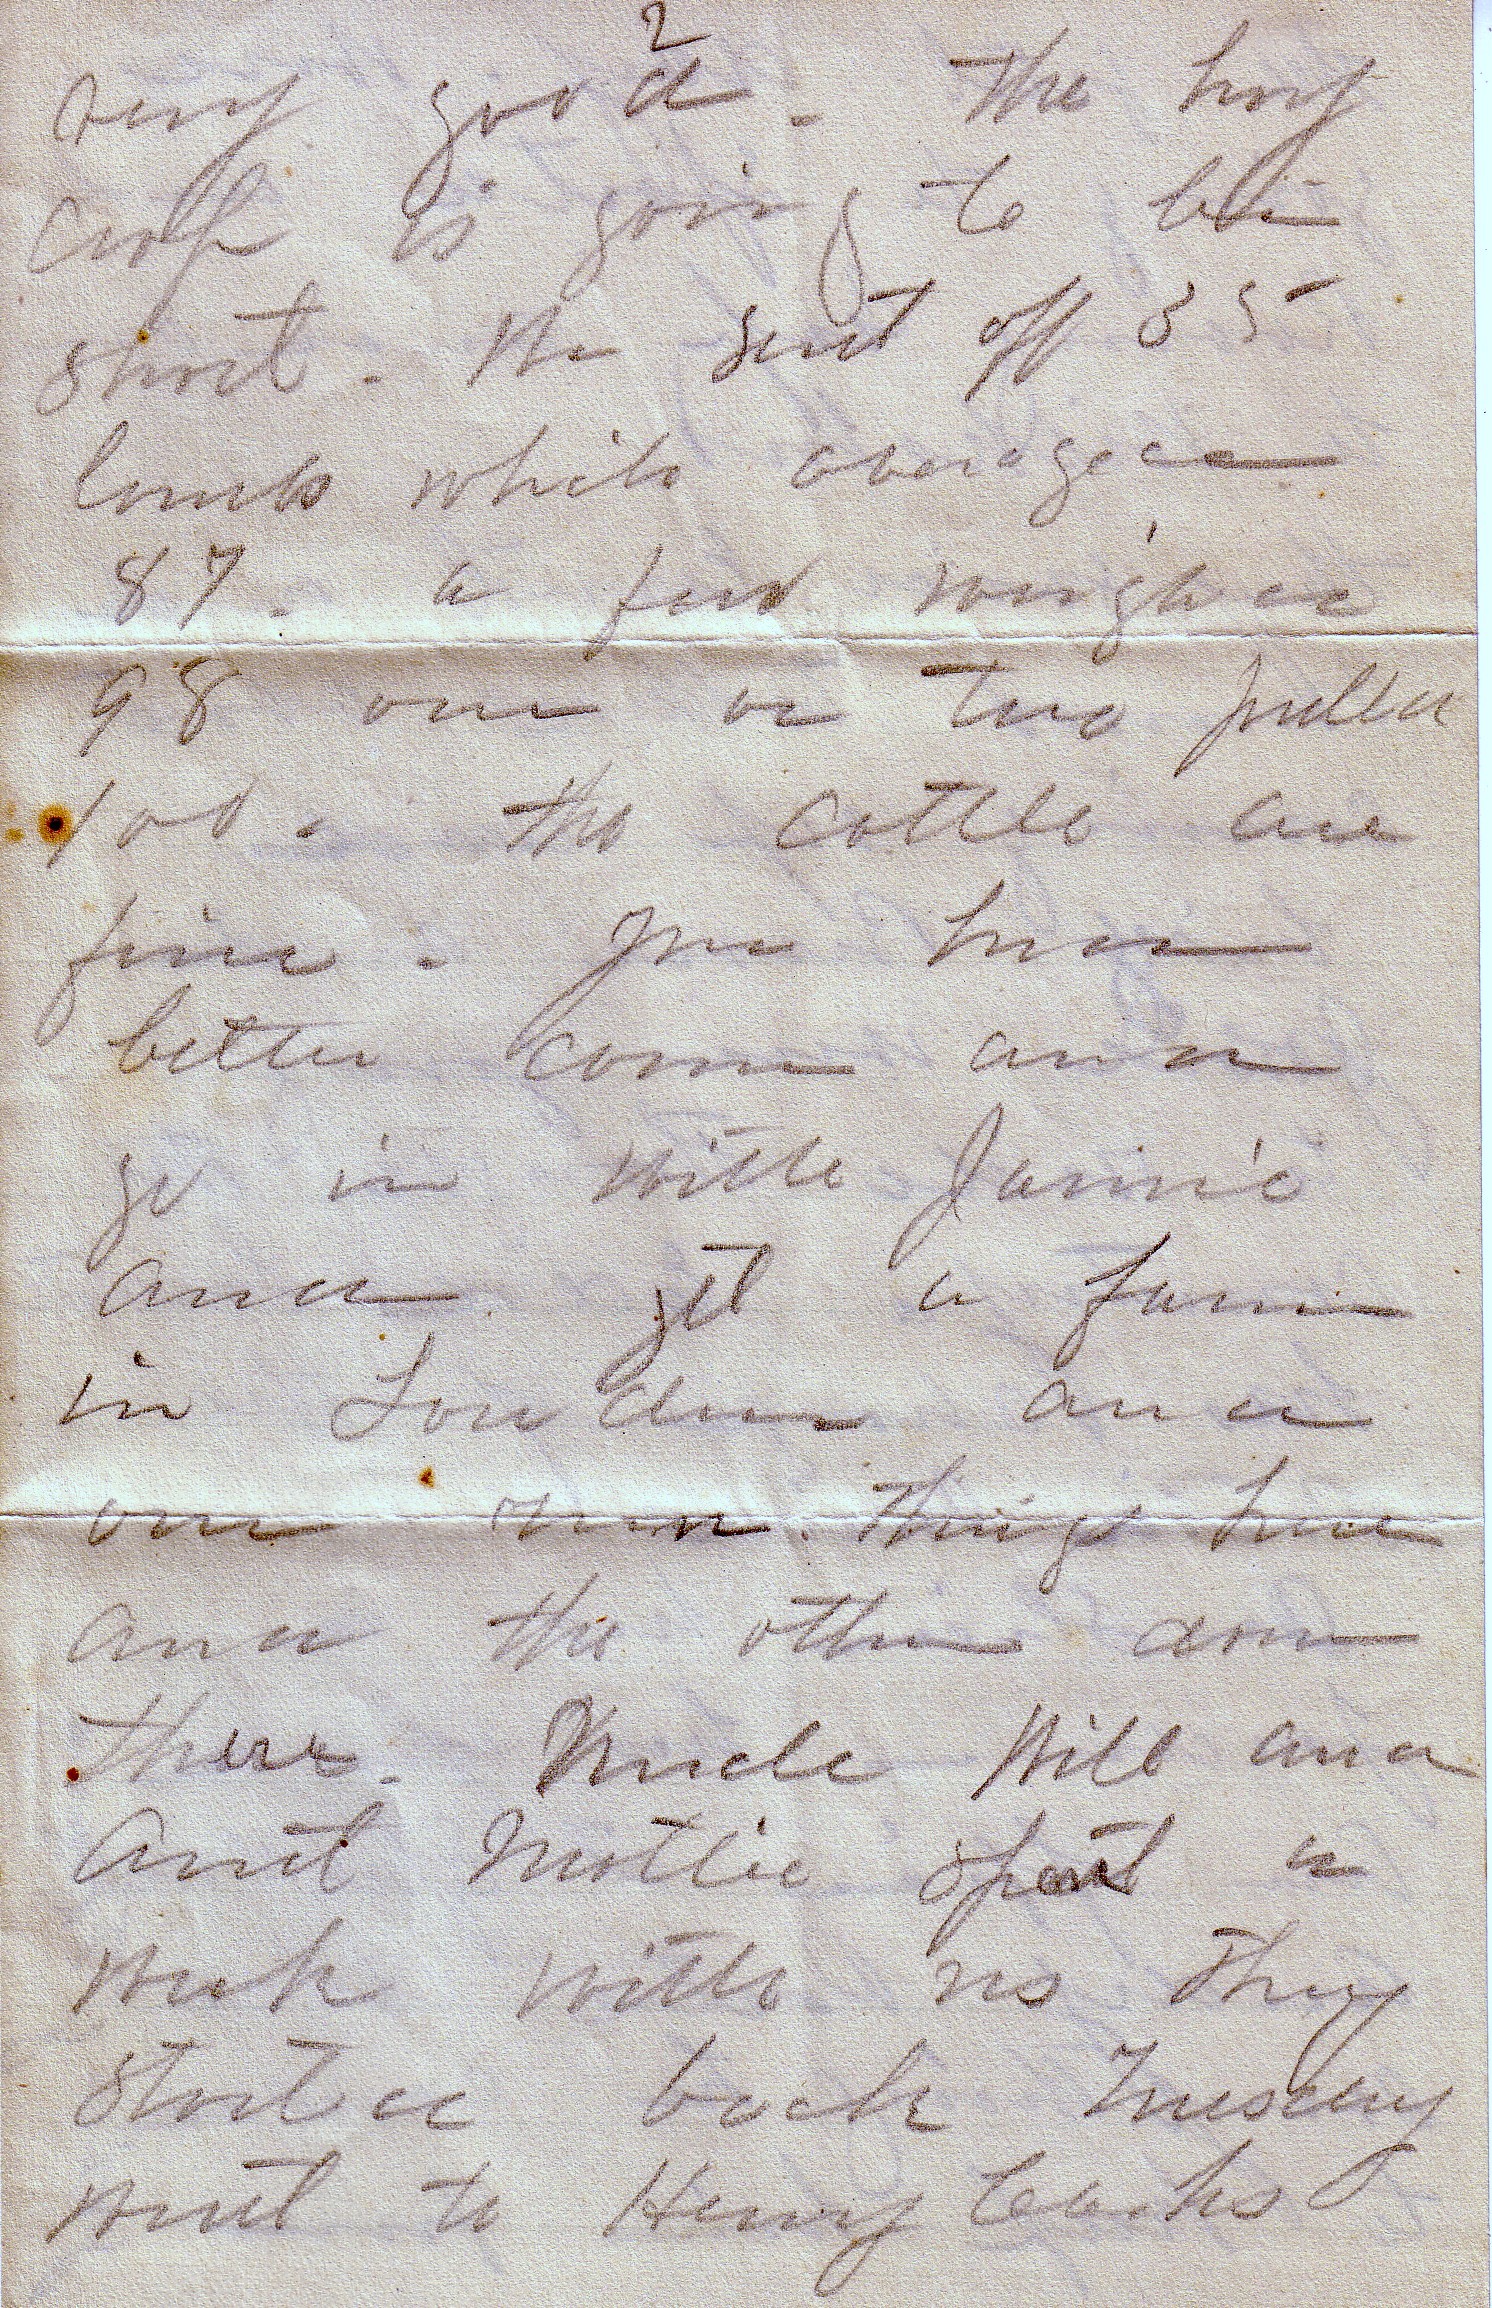 2
very good. The hay
crop is going to be
short. We sent off 35
lambs which averaged
87. a few weighed
98 one or two pulled
100. the cattle are
fine. You had
better come and
go in with Jamie
and get a farm
in Loudoun and
one man. things here
and the other down
there. Uncle Will and
Aunt Mollie spent a
week with us They
started back Tuesday
went to Henry Cocks